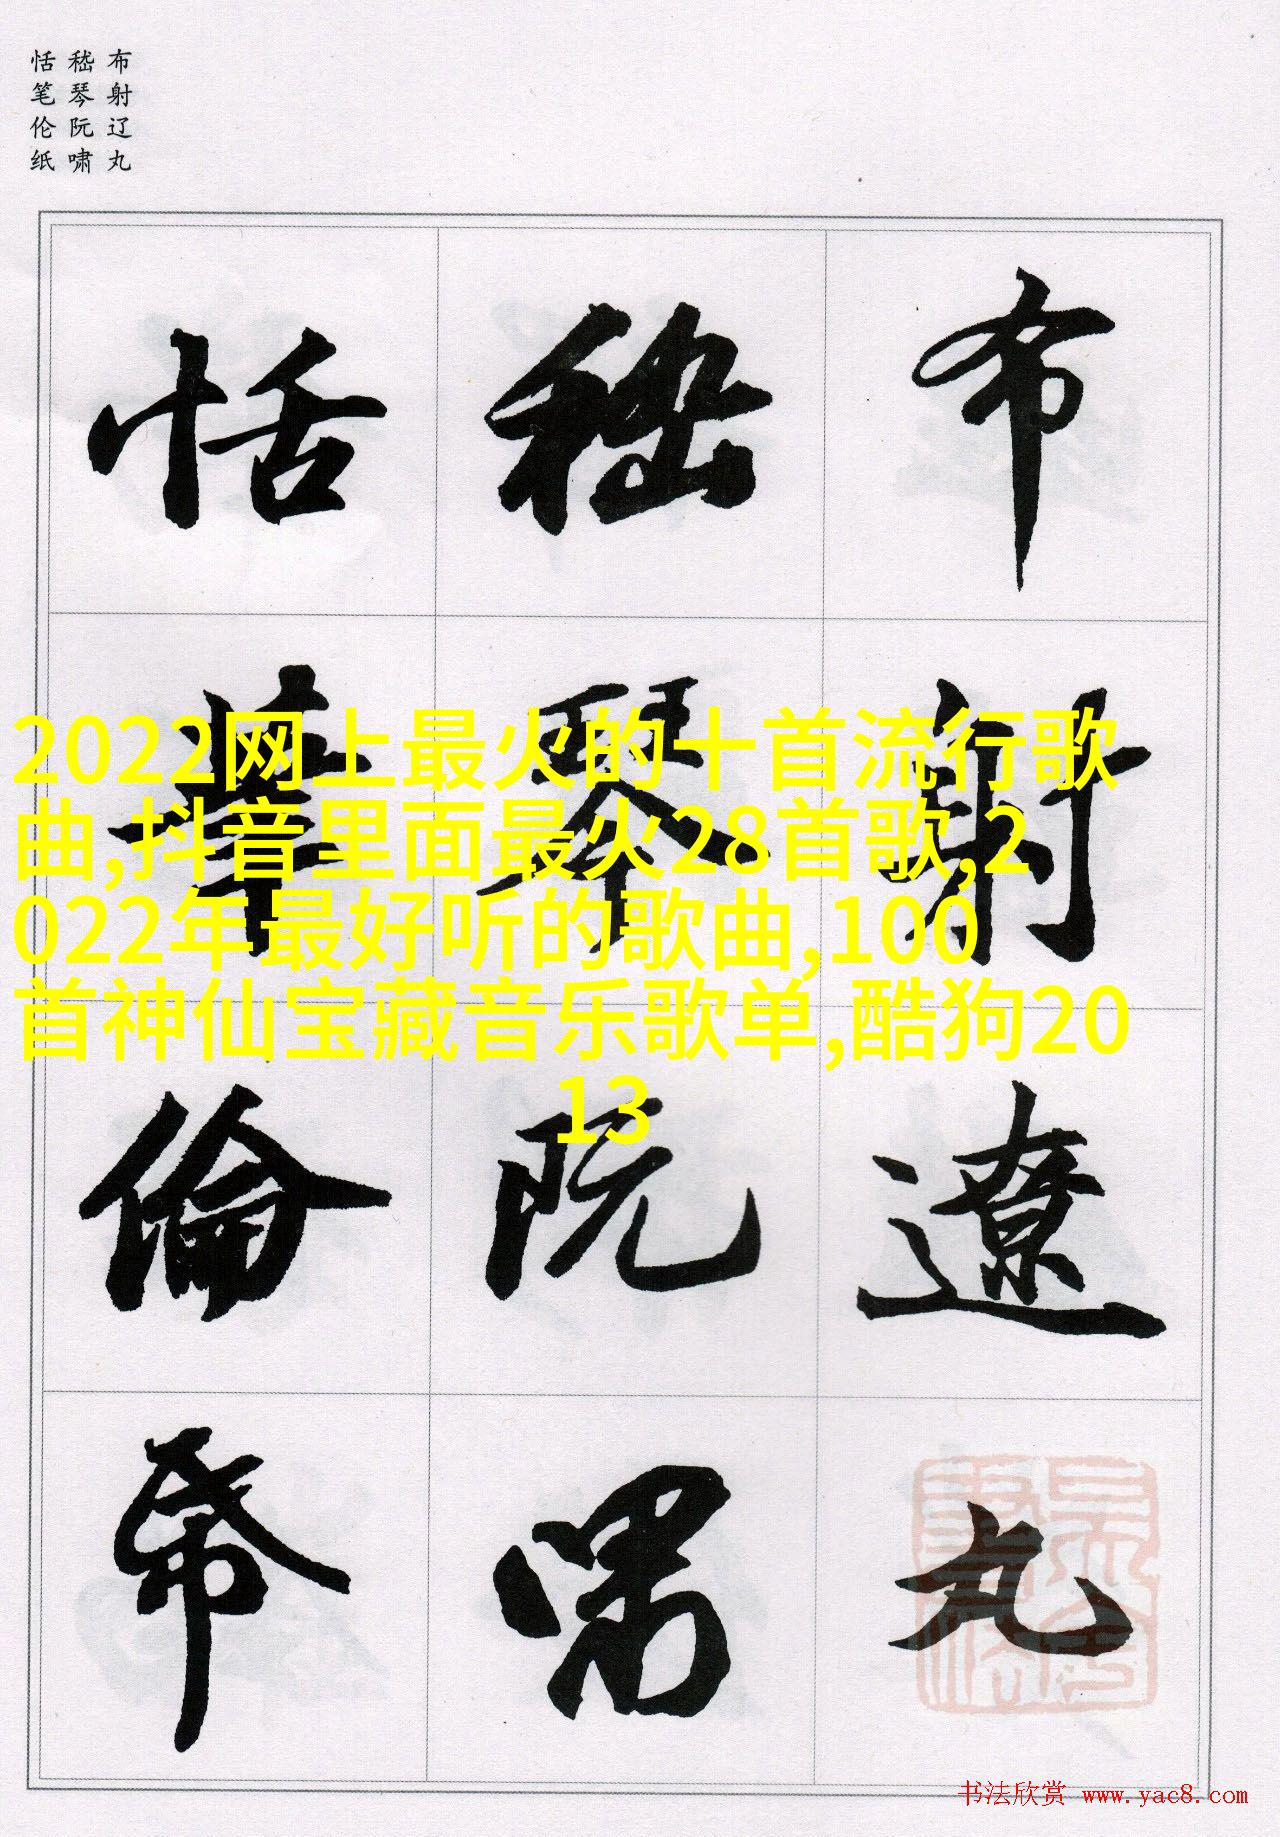 布射辽丸
嵇琴阮啸
恬笔伦纸
布射遼丸
嵇琴阮嘯
恬筆倫帋
2022网上最火的十首流行歌
曲,抖音里面最火28首歌,2
022年最好听的歌曲,100
首神仙宝藏音乐歌单,酷狗20
13
书法欣赏 www.yac8.com